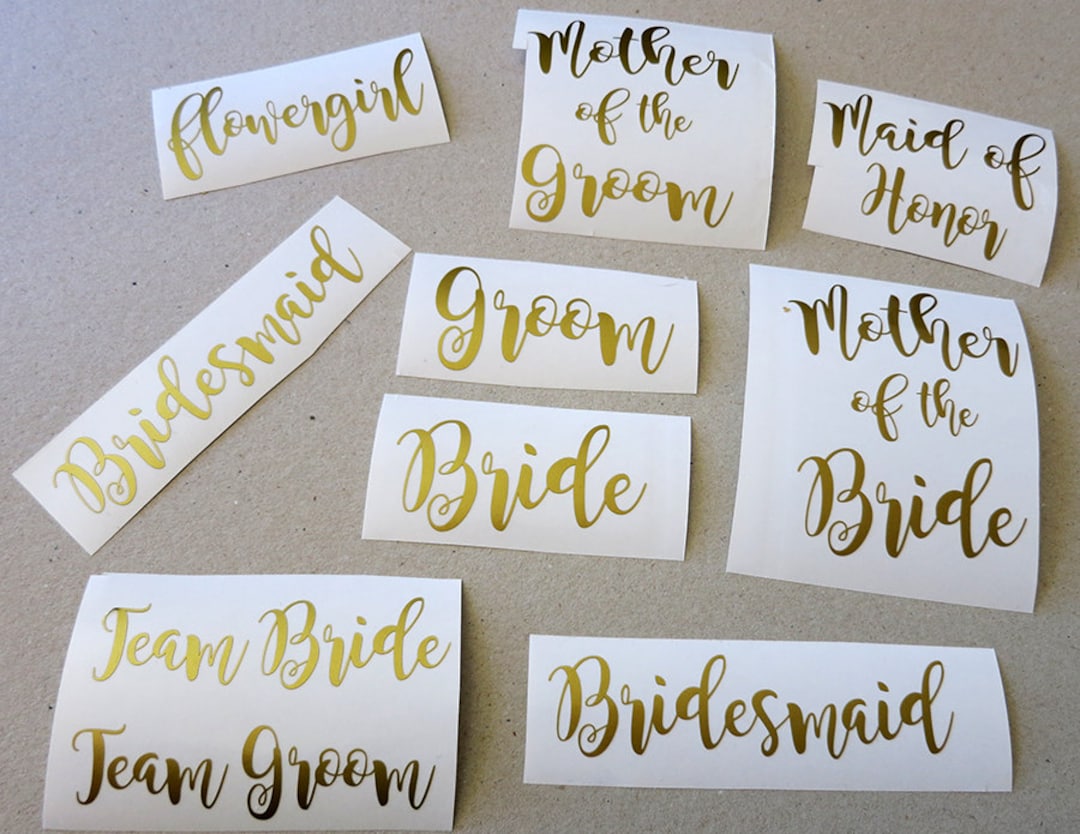 flowergirl
Mother
of the
Groom
Maid of
Honor
Bridesmaid
Groom
Bride
Mother
of the
Bride
Team Bride
Team Groom
Bridesmaid